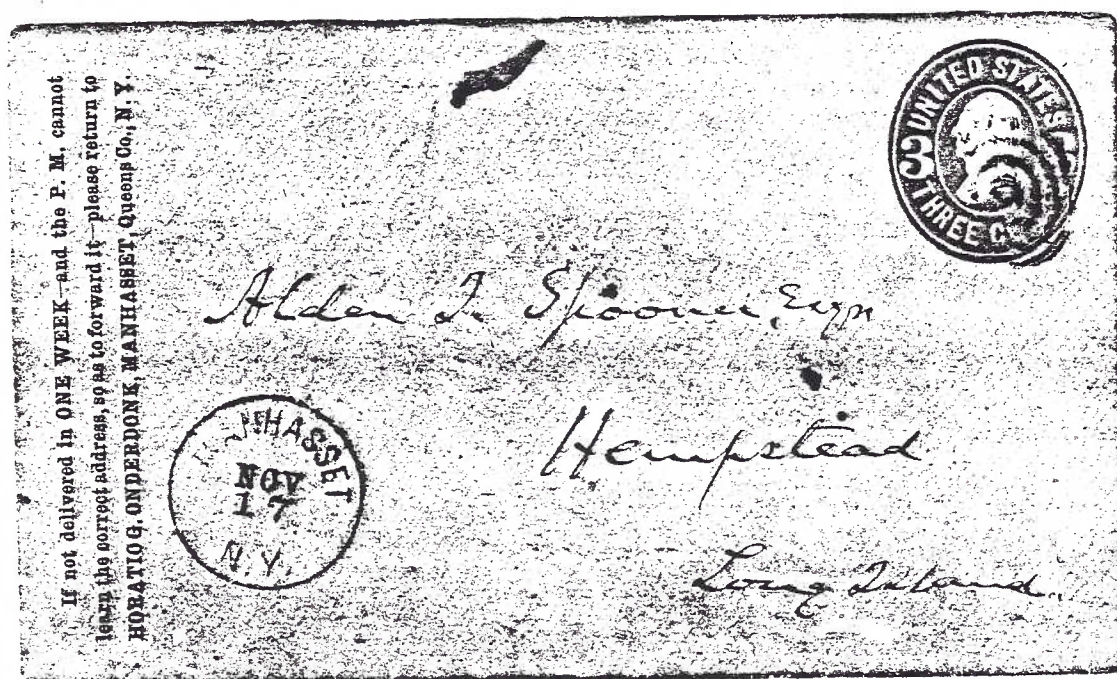 If not delivered in ONE WEEK—and the P. M. cannot
learn the correct address, so as to forward it—please return to
HORATIO G. ONDERDONK, MANHASSET, Queens Co., N. Y.
UNITED STATES
3 THREE C
Alden J. Spooner, Esqr
Hempstead
Long Island.
MANHASSET
NOV
17
N.Y.